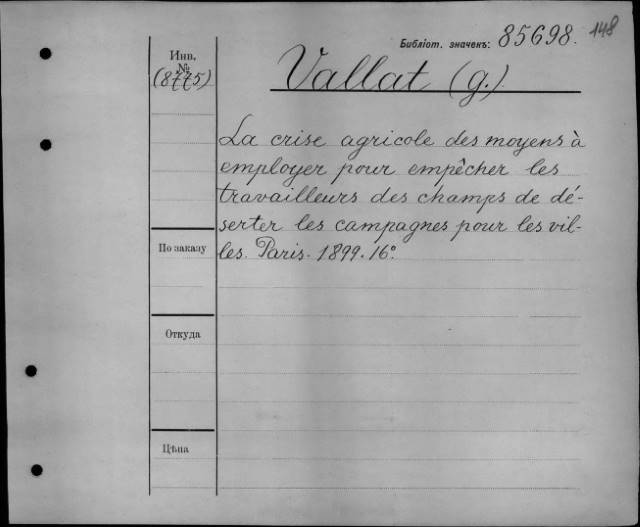 148
Библіот. значекъ: 85698.
Инв.
№
(8775)
Vallat (g.)
La crise agricole des moyens à
employer pour empêcher les
travailleurs des champs de dé-
serter les campagnes pour les vil-
les. Paris. 1899. 16º.
По заказу
Откуда
Цѣна